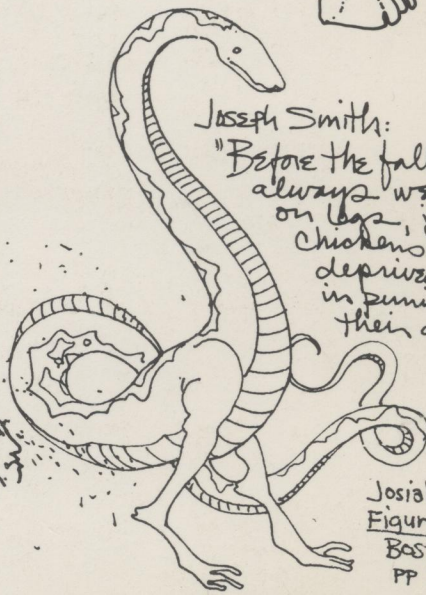 Joseph Smith:
"Before the fal
always we
on legs, i
chickens
deprive
in punis
their a
Josia
Figur
Bos
pp